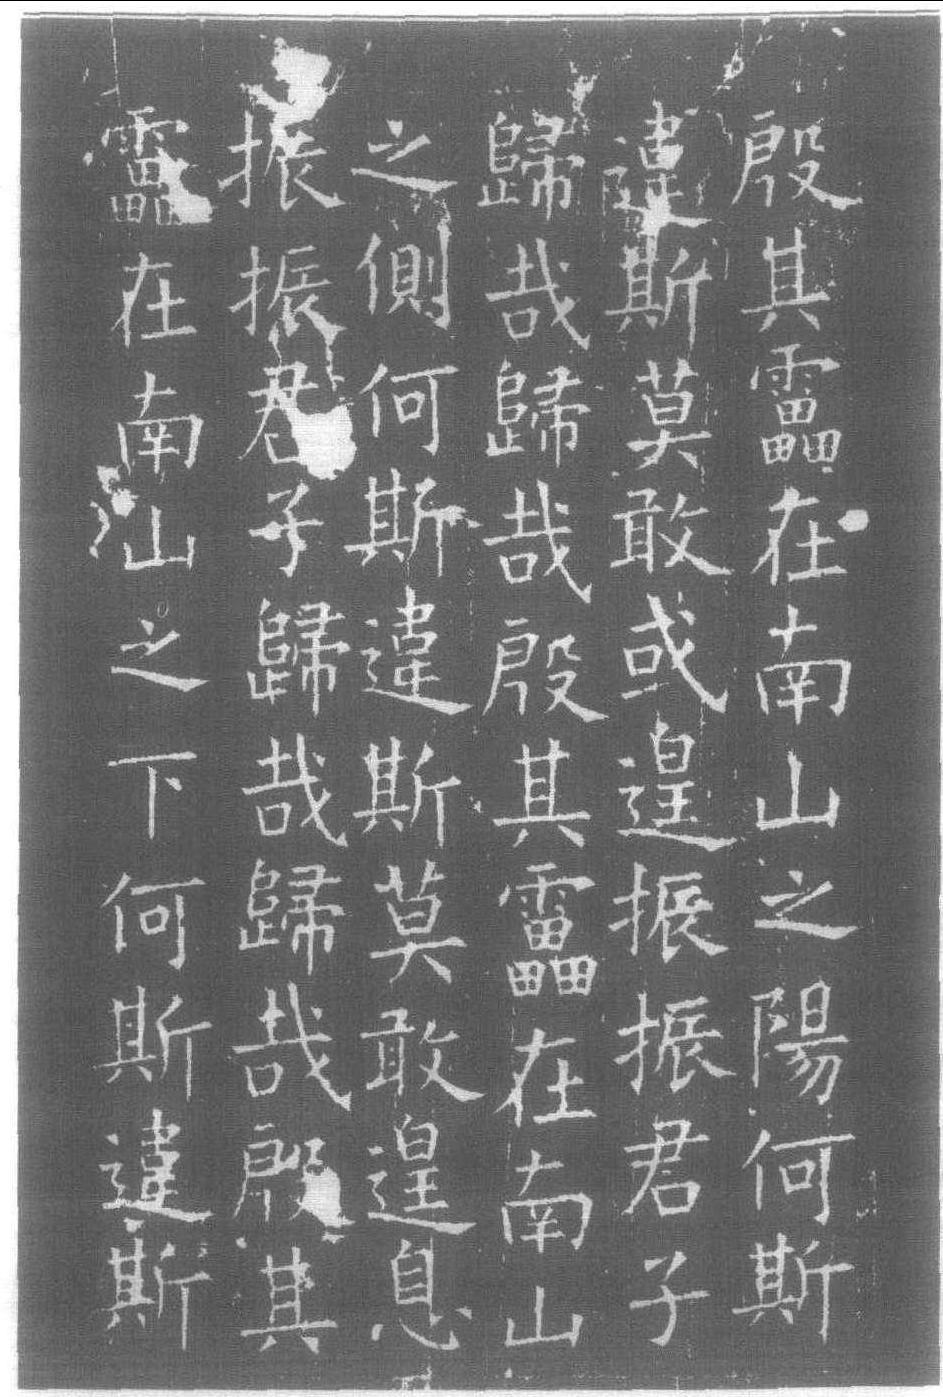 殷其靁在南山之陽何斯
違斯莫敢或遑振振君子
歸哉歸哉殷其靁在南山
之側何斯違斯莫敢遑息
振振君子歸哉歸哉殷其
靁在南山之下何斯違斯